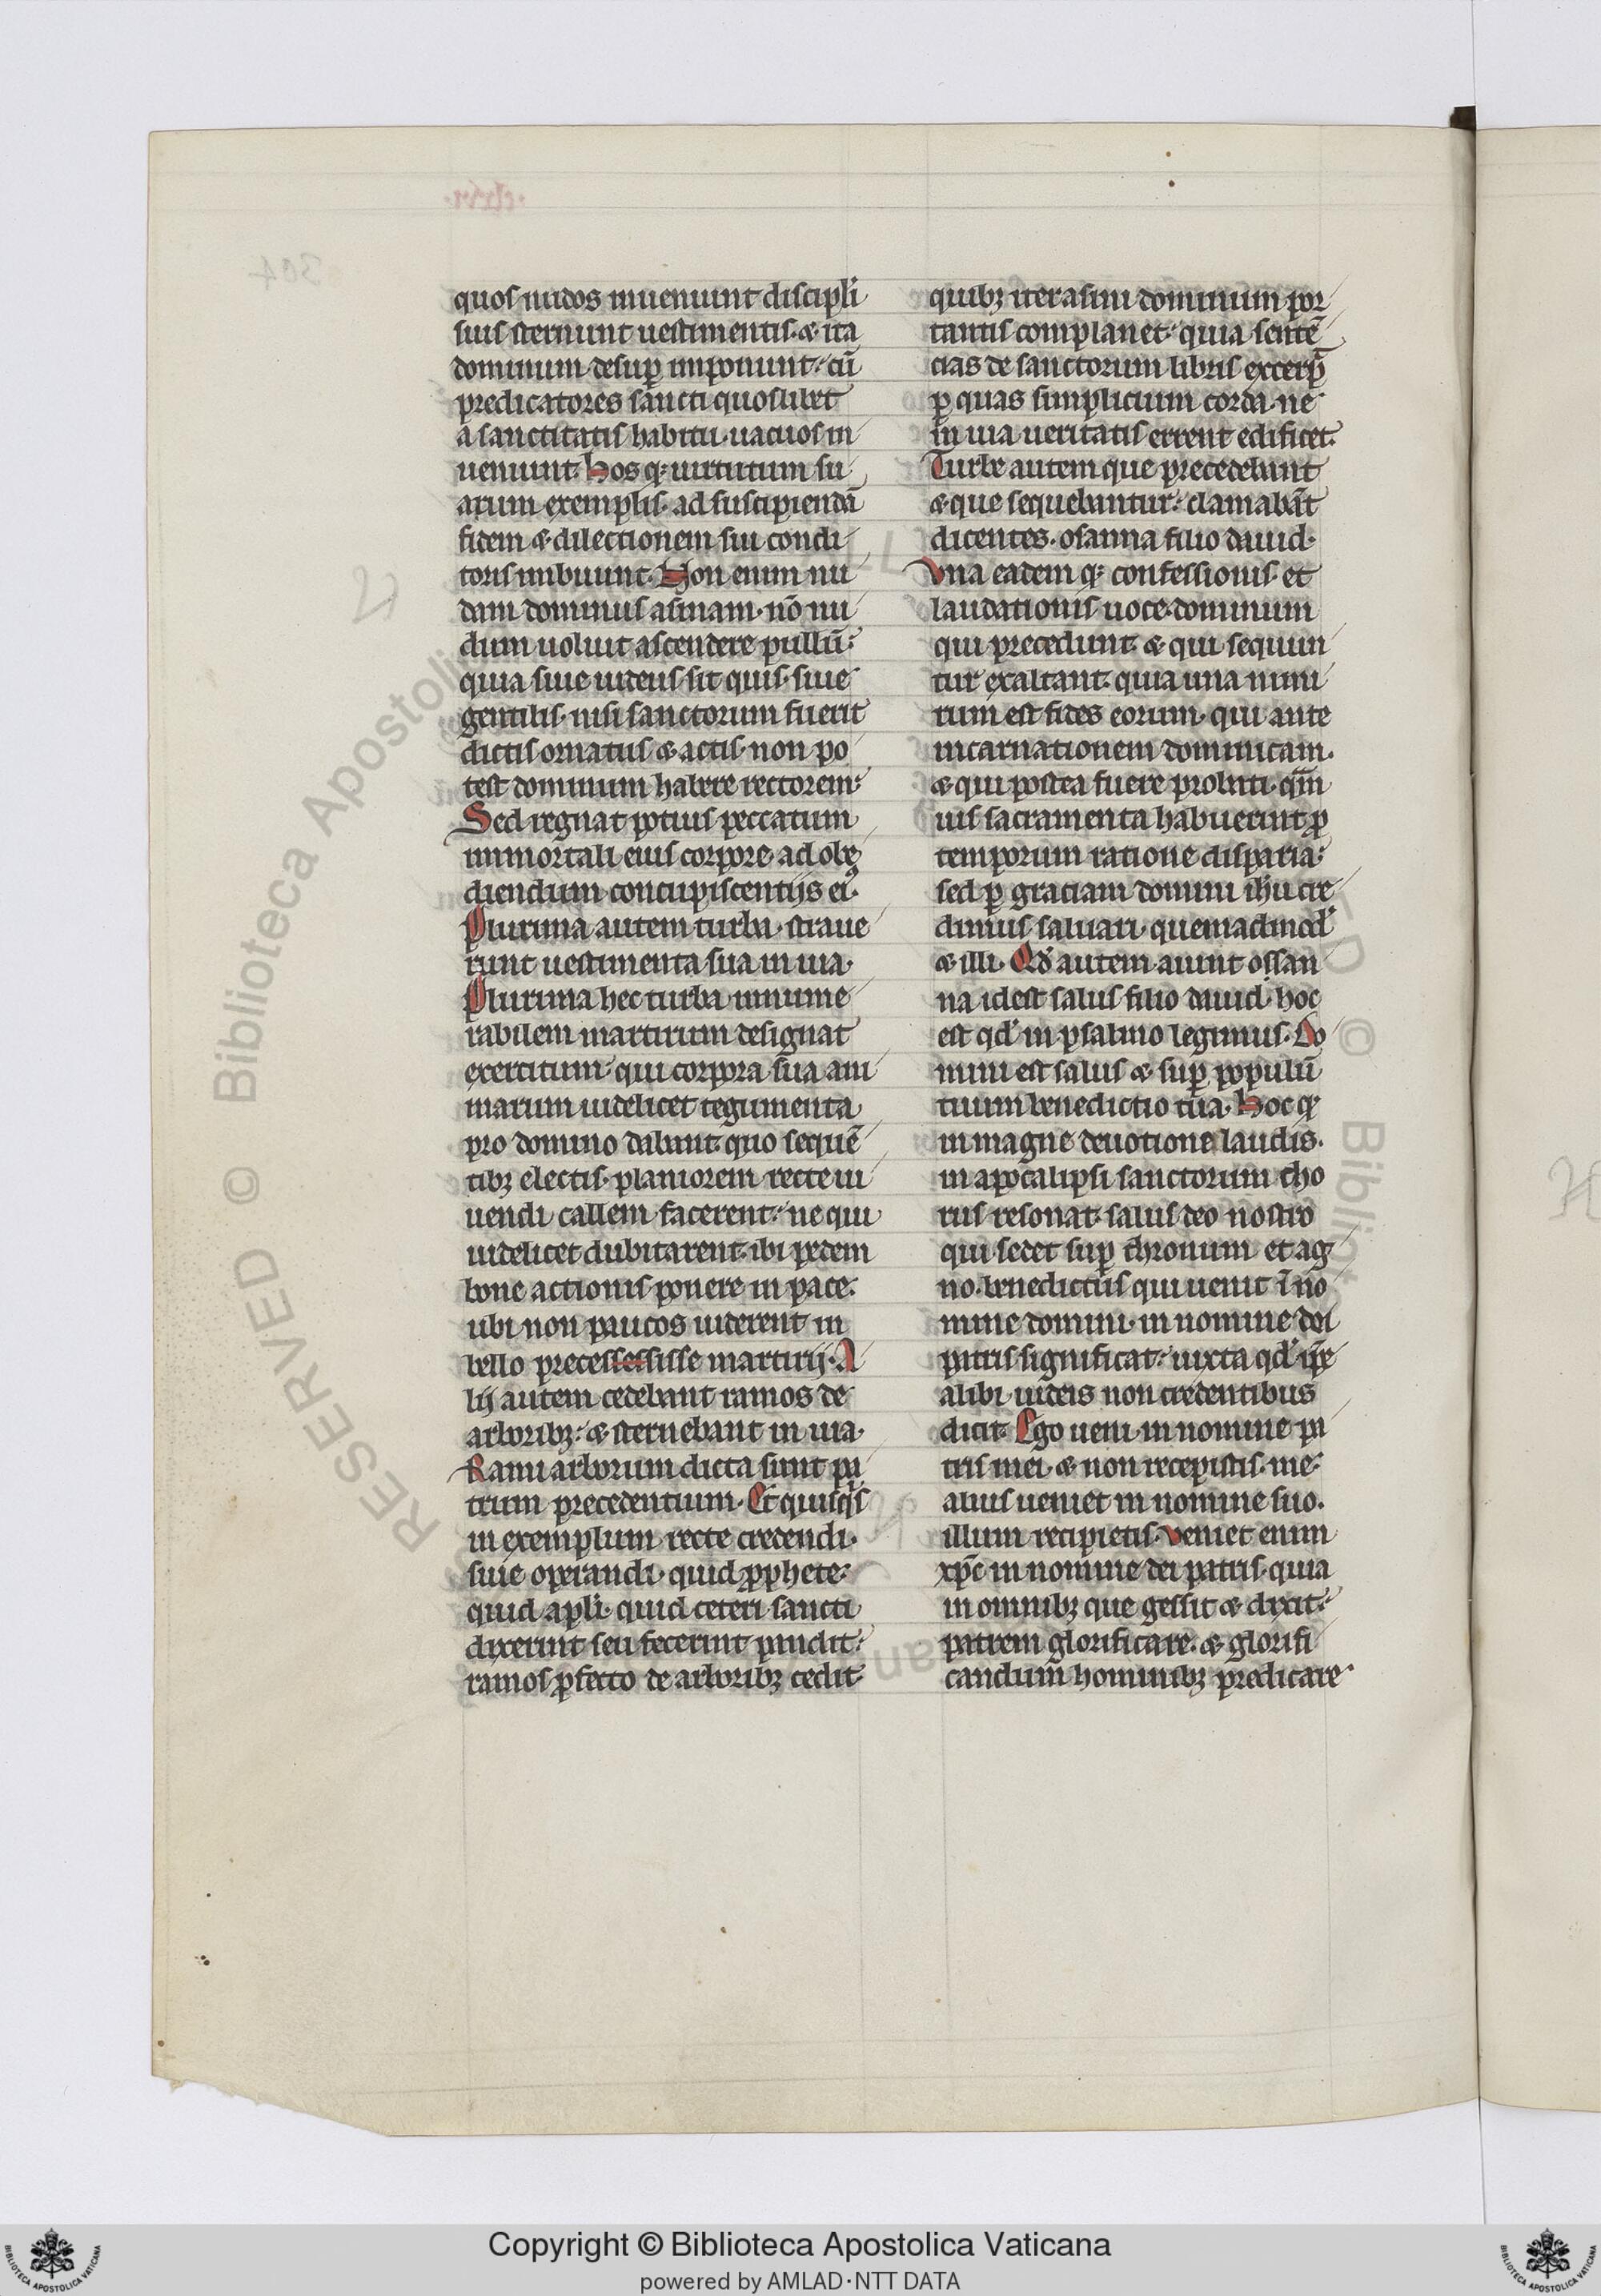 quos nudos inueniunt discipli
suis sternunt uestimentis. & ita
dominum desup̱ imponunt. cū
predicatores sancti quoslibet
a sanctitatis habitu uacuos in
ueniunt. Hos q; uirtutum su
arum exemplis. ad suscipiendā
fidem & dilectionem sui condi
toris imbuunt. Non enim nu
dam dominus asinam. nō nu
dum uoluit ascendere pullū.
quia siue iudeus sit quis. siue
gentilis. nisi sanctorum fuerit
dictis ornatus & actis. non po
test dominum habere rectorem.
Sed regnat potius peccatum
in mortali eius corpore. ad obe
diendum concupiscentijs eiꝰ.
Plurima autem turba. straue
runt uestimenta sua in uia.
Plurima hec turba innume
rabilem martirum designat
exercitum. qui corpora sua ani
marum uidelicet tegumenta
pro domino dabant. quo sequē
tibꝫ electis. planiorem recte ui
uendi callem facerent. ne qui
uidelicet dubitarent. ibi pedem
bone actionis ponere in pace.
ubi non paucos uiderent in
bello precessessisse martirij. A
lij autem cedebant ramos de
arboribꝫ. & sternebant in uia.
Rami arborum dicta sunt pa
trum precedentium. Et quisqs
in exemplum recte credendi.
siue operandi. quid ꝓphete.
quid apli. quid ceteri sancti
dixerint seu fecerint pandit.
ramos ꝓfecto de arboribꝫ cedit
quibꝫ iter asini dominum por
tantis complanet. quia sentē
cias de sanctorum libris excerp̄
ꝑ quas simplicium corda. ne
in uia ueritatis errent edificet.
Turbe autem que precedebant
& que sequebantur. clamabāt
dicentes. osanna filio dauid.
Una eadem q; confessionis et
laudationis uoce. dominum
qui precedunt. & qui sequun
tur exaltant. quia una nimi
rum est fides eorum. qui ante
incarnationem dominicam.
& qui postea fuere probati. qm̄
uis sacramenta habuerint ꝓ
temporum ratione disparia.
sed ꝑ graciam domini ihu cre
dimus saluari. quemadmodꝰ
& illi. Qd autem aiunt ossan
na idest salus filio dauid. hoc
est qd in psalmo legimus. Do
mini est salus & suꝑ populū
tuum benedictio tua. Hoc q;
in magne deuotione laudis.
in apocalipsi sanctorum cho
rus resonat. salus deo nostro
qui sedet suꝑ thronum et ag
no. benedictus qui uenit ī no
mine domini. in nomine dei
patris significat. iuxta qd ip̄e
alibi iudeis non credentibus
dicit. Ego ueni in nomine pa
tris mei. & non recepistis me.
alius ueniet in nomine suo.
illum recipietis. Veniet enim
xp̄c in nomine dei patris. quia
in omnibꝫ que gessit & dixit.
patrem glorificare. & glorifi
candum hominibꝫ predicare
Copyright © Biblioteca Apostolica Vaticana
powered by AMLAD·NTT DATA